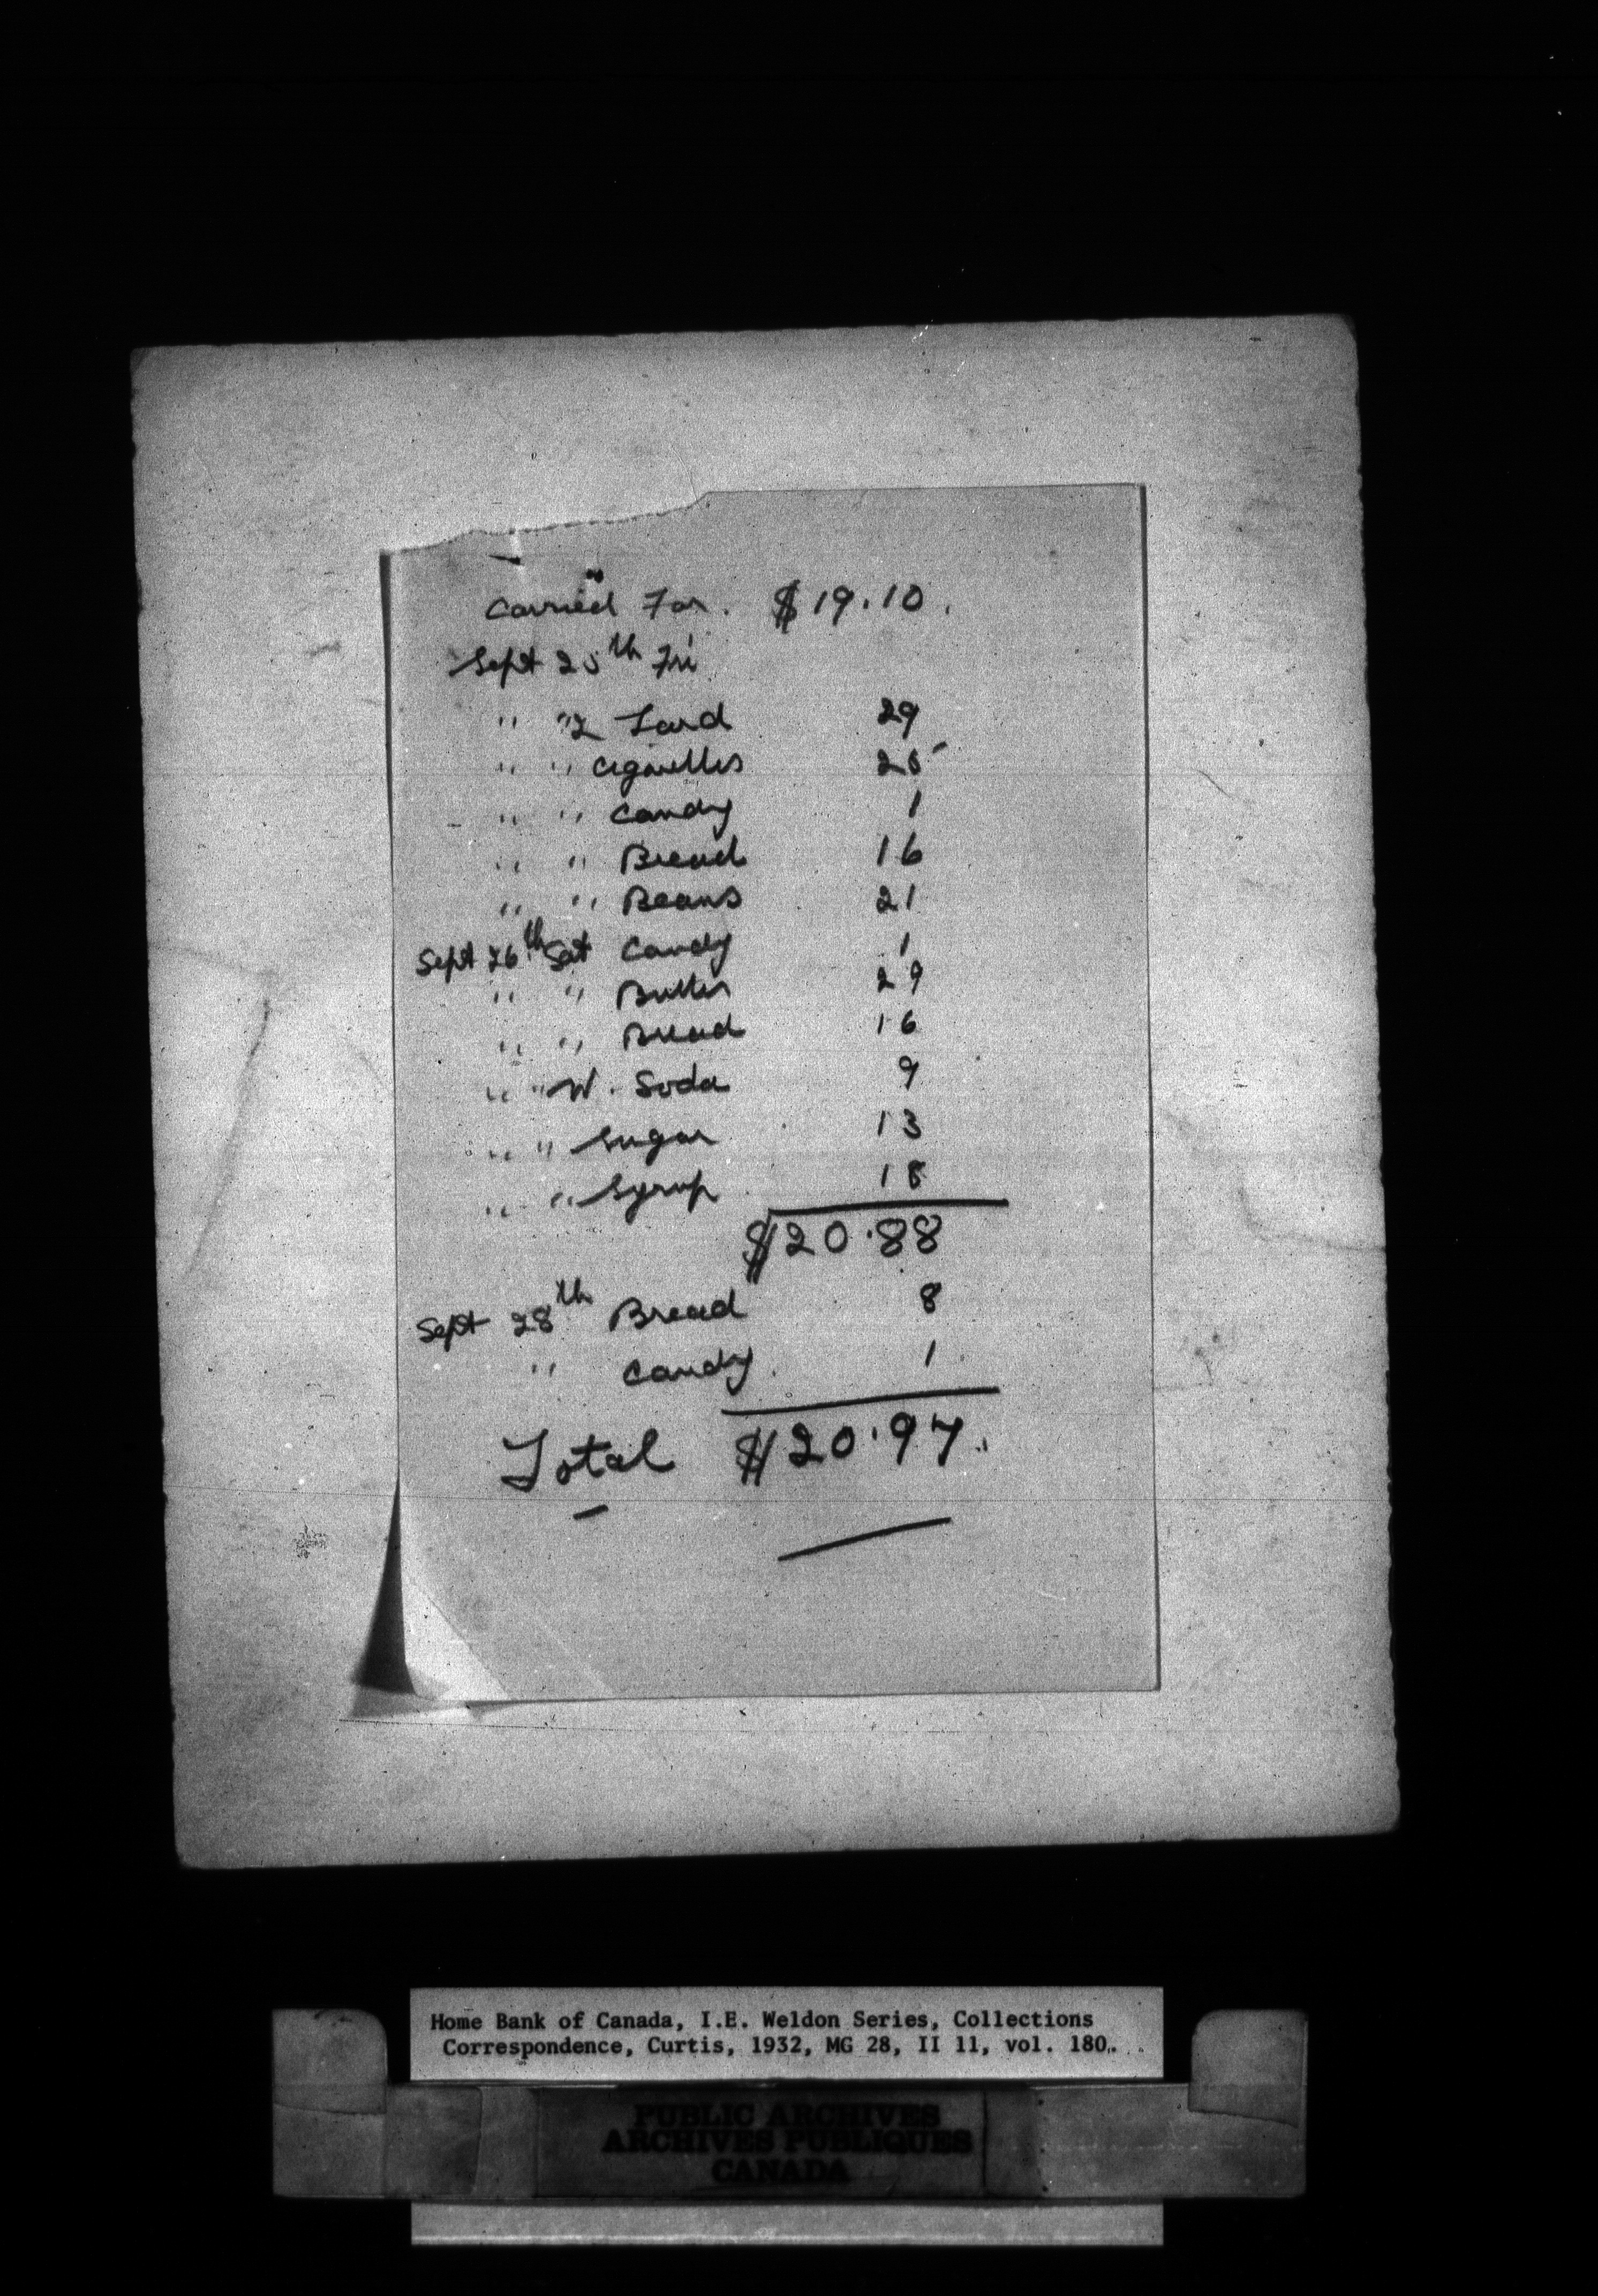 Carried For. $19.10.
Sept 25th Fri
" " 2 Lard 29
" " Cigarettes 25
" " Candy 1
" " Bread 16
" " Beans 21
Sept 26th Sat Candy 1
" " Butter 29
" " Bread 16
" " W. Soda 9
" " Sugar 13
" " Syrup 18
$20.88
Sept 28th Bread 8
" Candy. 1
Total $20.97.
Home Bank of Canada, I.E. Weldon Series, Collections
Correspondence, Curtis, 1932, MG 28, II 11, vol. 180.
PUBLIC ARCHIVES
ARCHIVES PUBLIQUES
CANADA